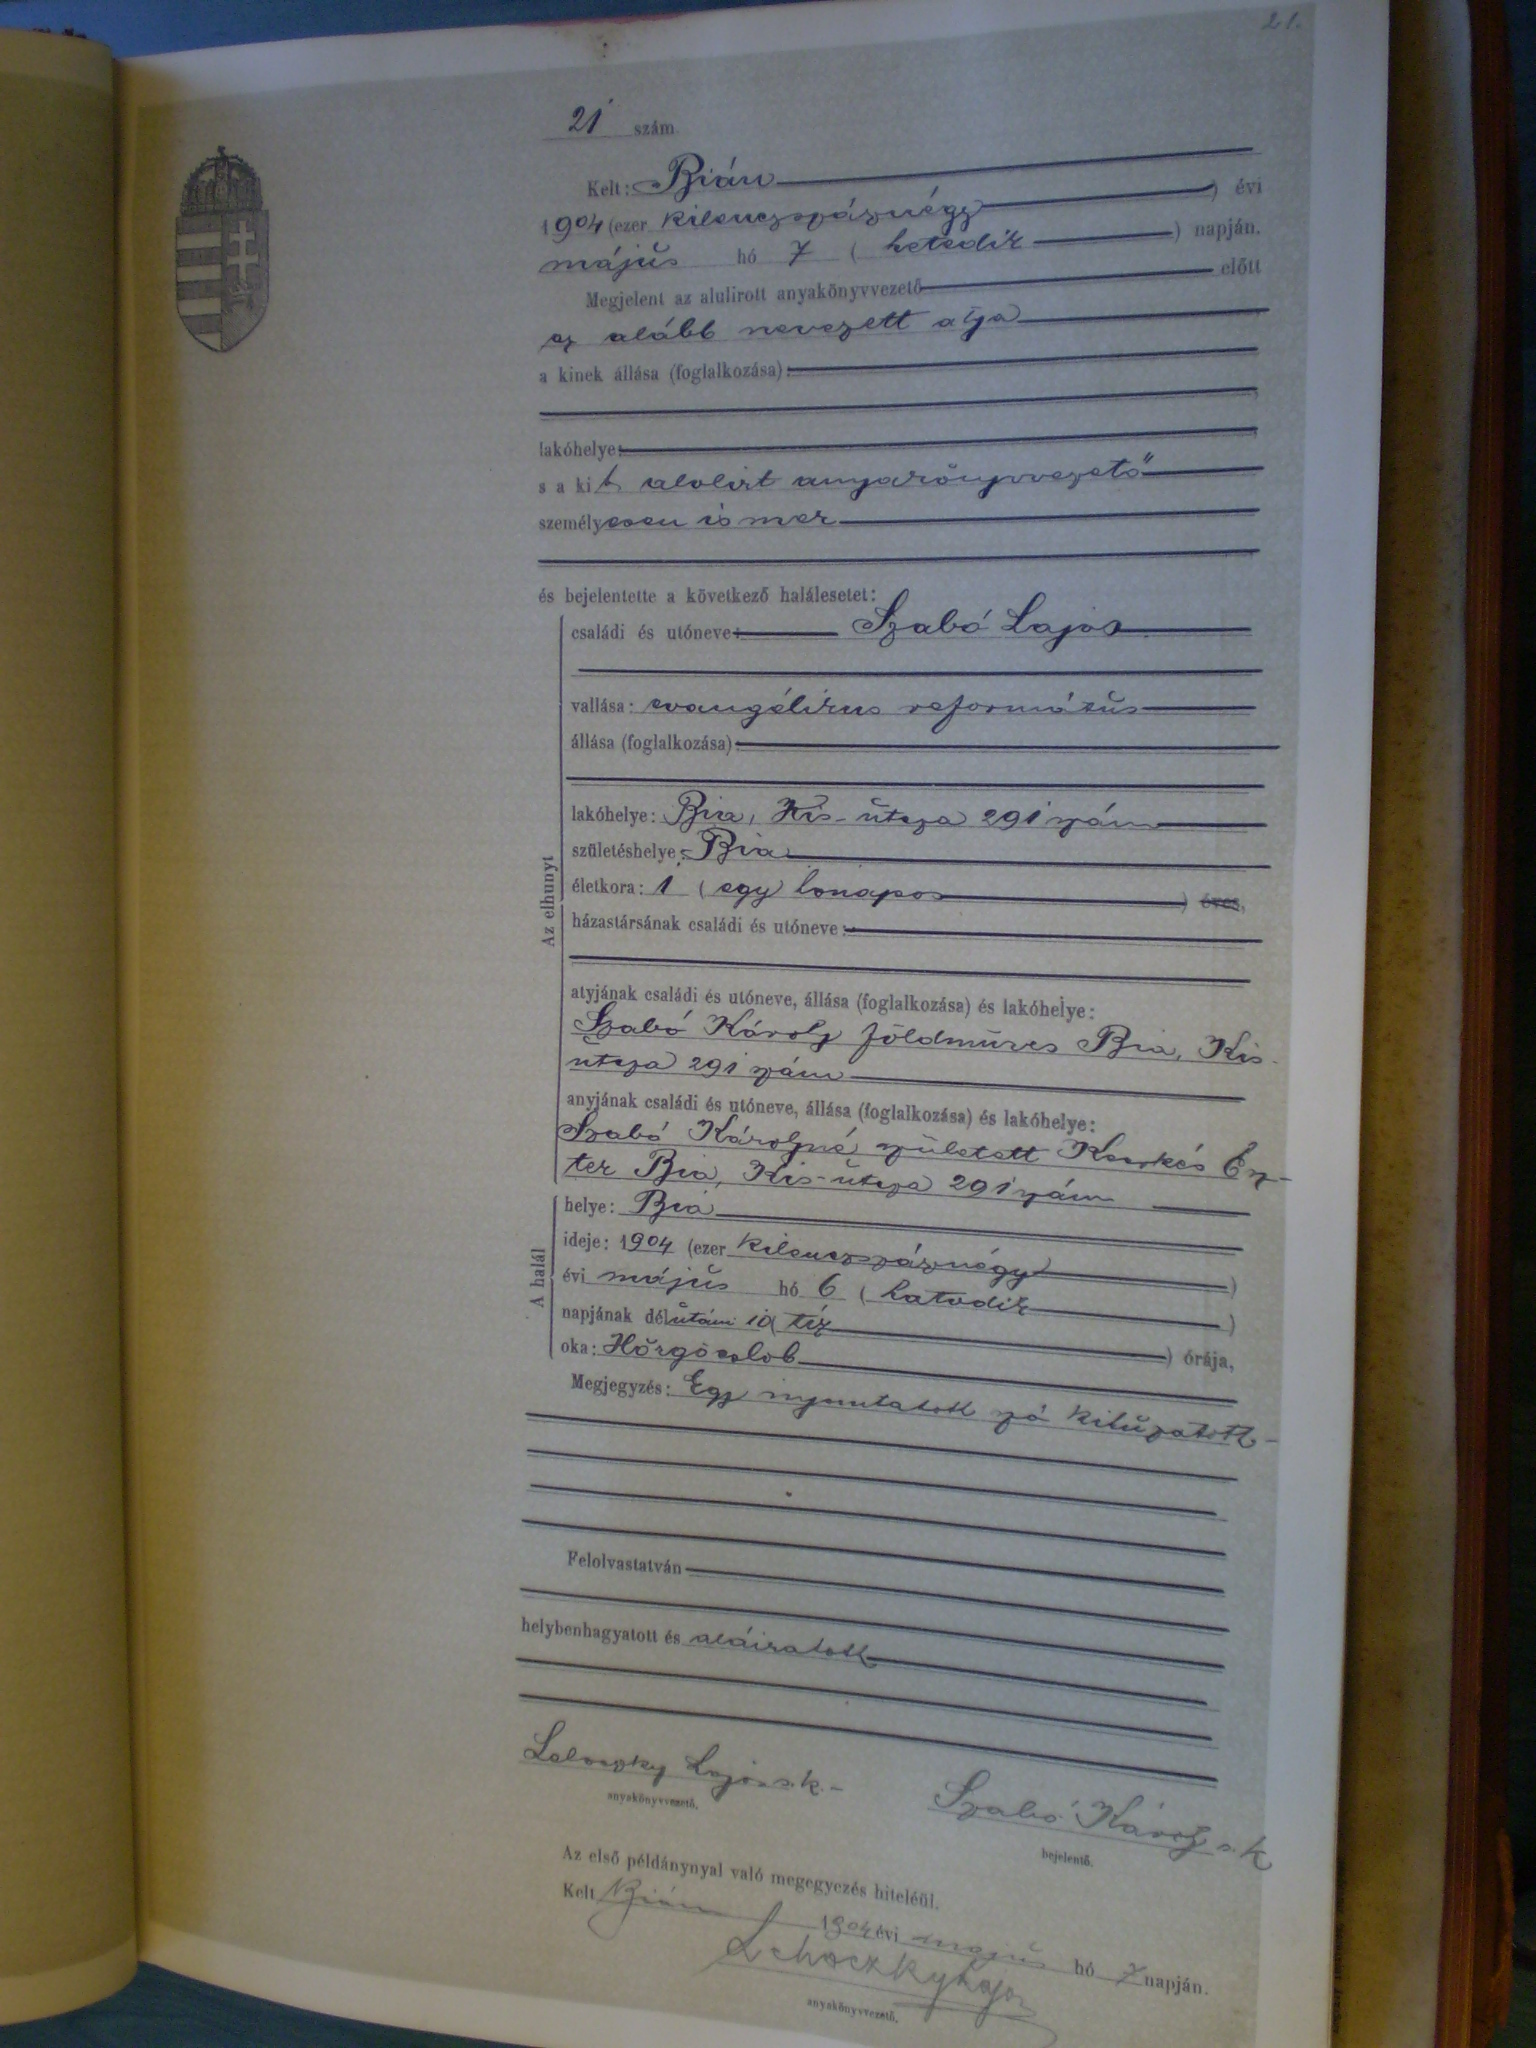 21.
21 szám
Kelt: Bián
1904 (ezer kilenczszáznégy) évi
május hó 7 (hetedik) napján.
Megjelent az alulirott anyakönyvvezető előtt
az alább nevezett atya
a kinek állása (foglalkozása):
lakóhelye:
s a kit alolirt anyakönyvvezető
személyesen ismer
és bejelentette a következő halálesetet:
Az elhunyt
családi és utóneve: Szabó Lajos
vallása: evangélikus református
állása (foglalkozása)
lakóhelye: Bia, Kis-útcza 291 szám
születéshelye: Bia
életkora: 1 (egy hónapos) éves,
házastársának családi és utóneve:
atyjának családi és utóneve, állása (foglalkozása) és lakóhelye:
Szabó Károly földmüves Bia, Kis-
útcza 291 szám
anyjának családi és utóneve, állása (foglalkozása) és lakóhelye:
Szabó Károlyné született Kecskés Esz-
ter Bia, Kis-útcza 291 szám
A halál
helye: Bia
ideje: 1904 (ezer kilenczszáznégy)
évi május hó 6 (hatodik)
napjának délután 10 (tíz) órája,
oka: Hörgőcslob
Megjegyzés: Egy nyomtatott szó kihúzatott-
Felolvastatván
helybenhagyatott és aláiratott
Lehoczky Lajos s.k.-
anyakönyvvezető.
Szabó Károly s.k
bejelentő.
Az első példánynyal való megegyezés hiteléül.
Kelt Bián 1904 évi május hó 7 napján.
Lehoczky Lajos
anyakönyvvezető.